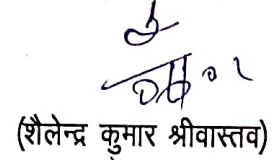 (शैलेन्द्र कुमार श्रीवास्तव)